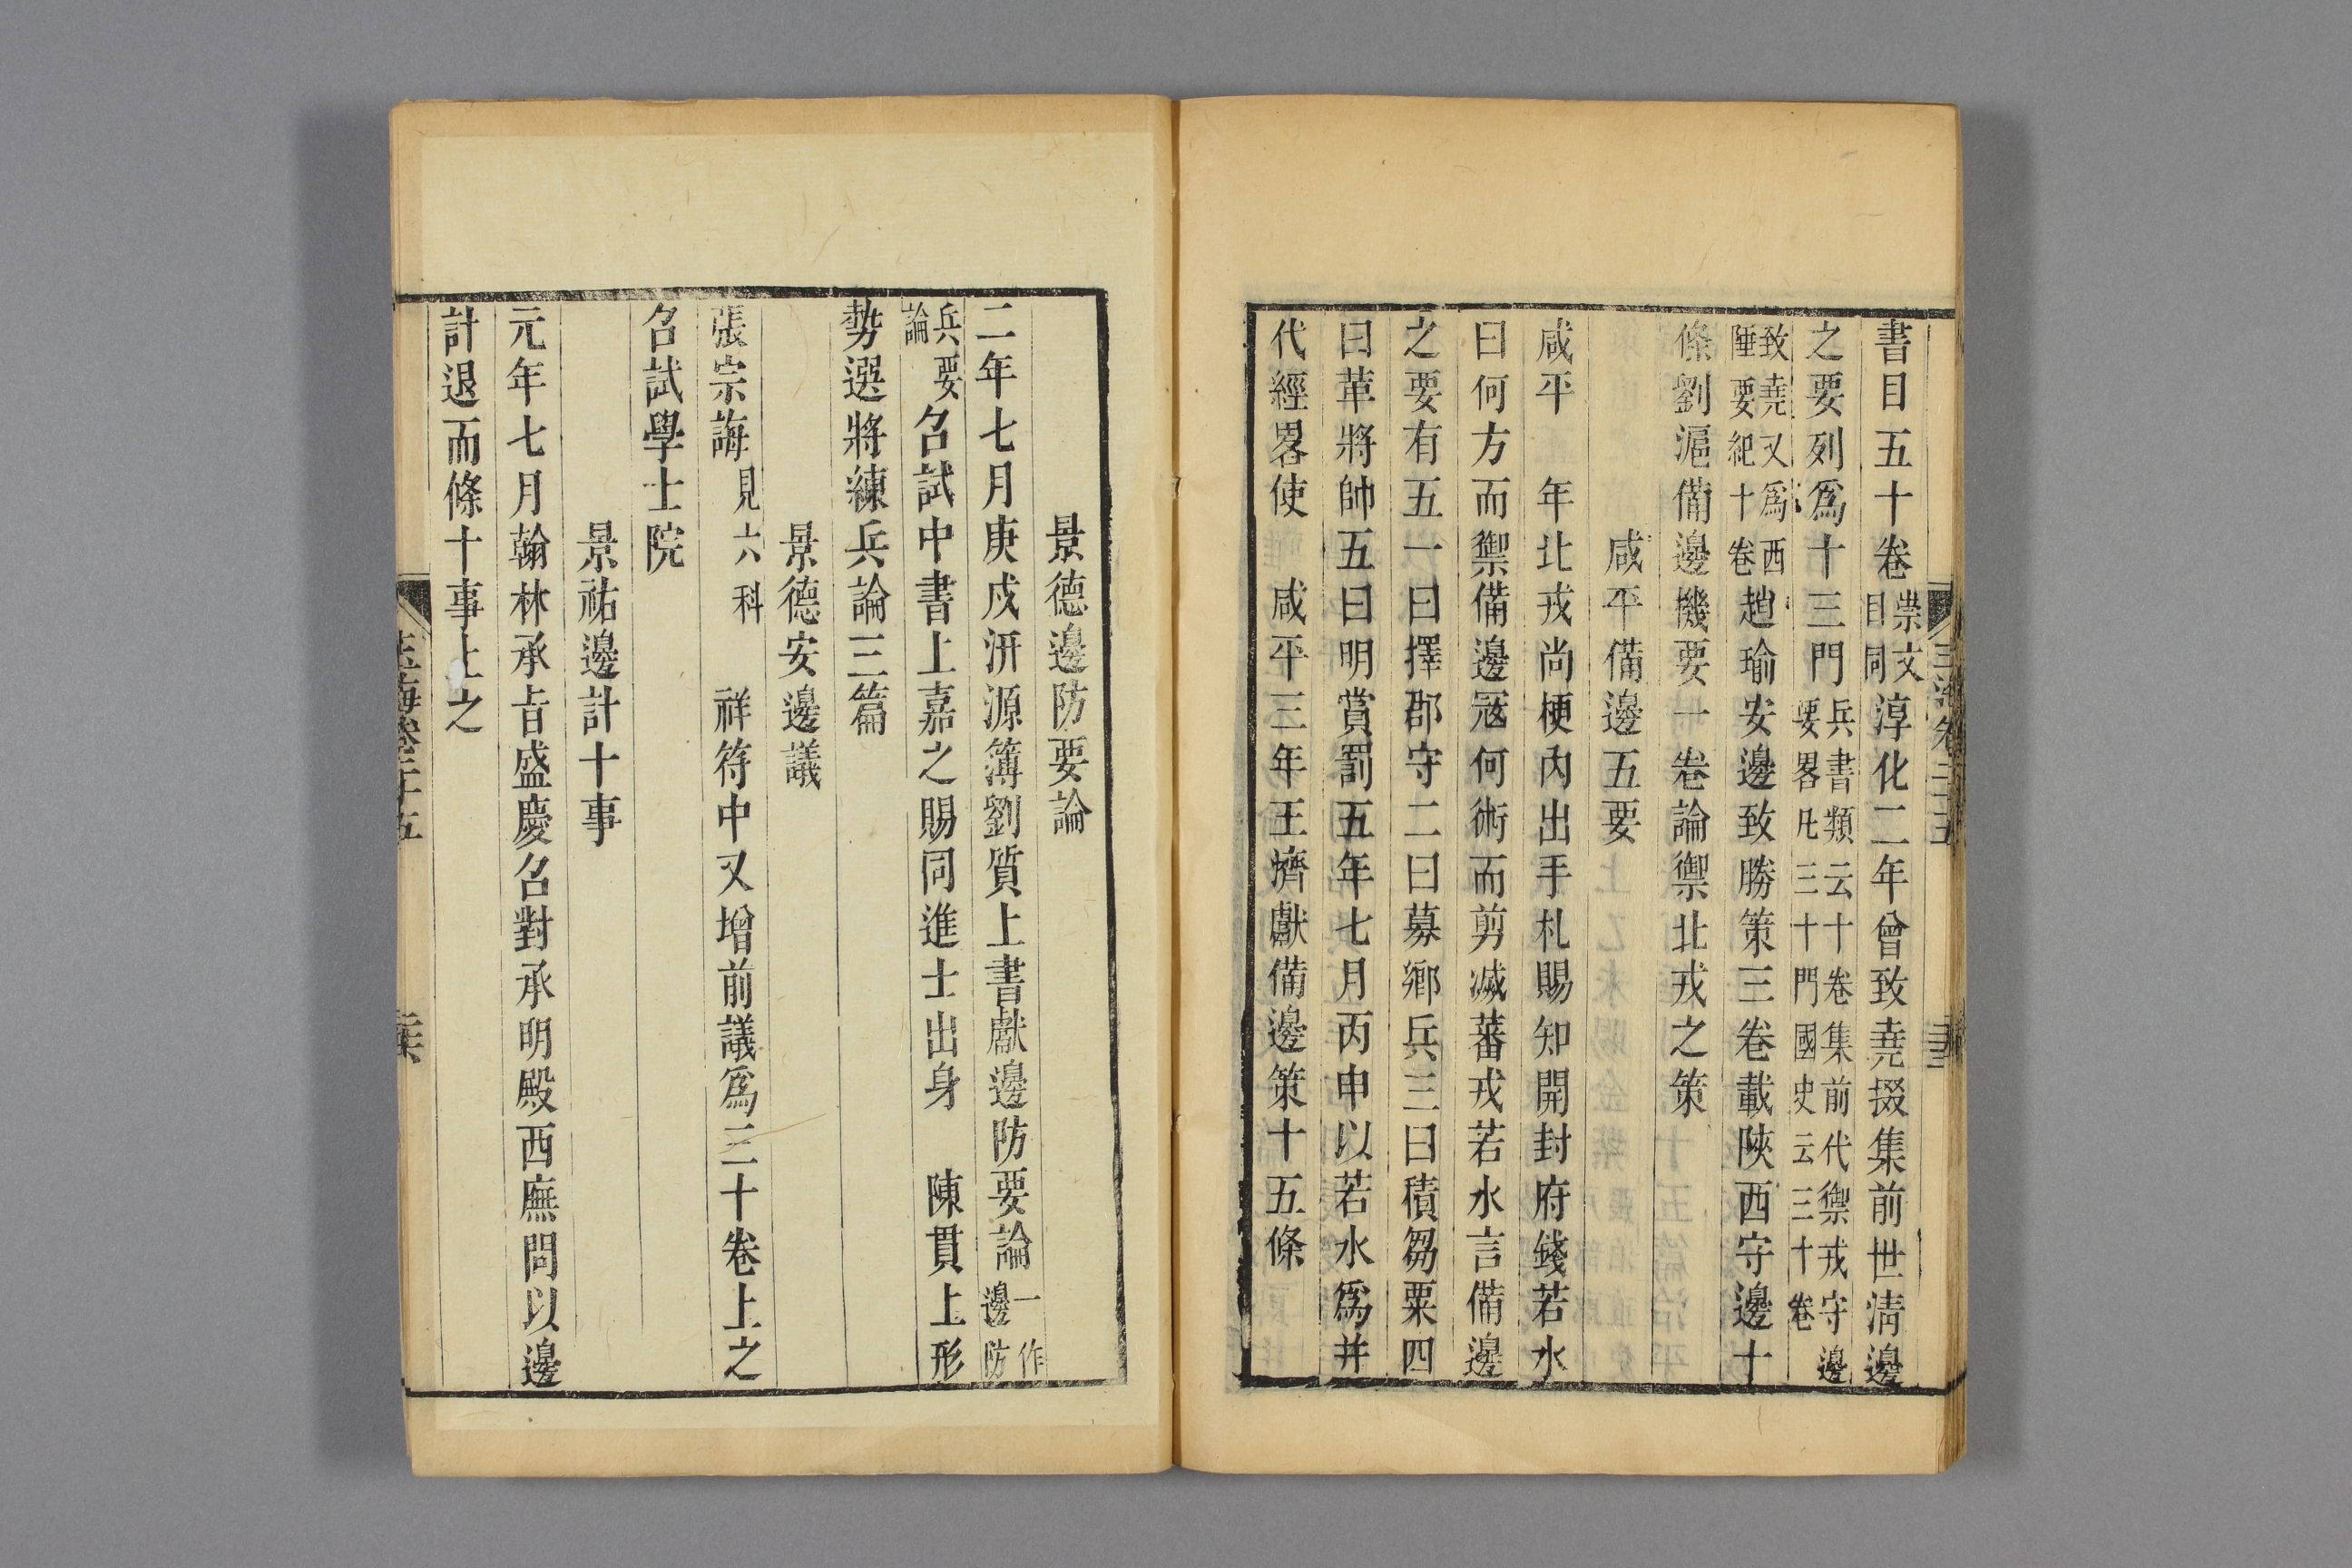 書目五十卷崇文目同淳化二年曾致堯掇集前世淸邊
之要列爲十三門兵書類云十卷集前代禦戎守邊要畧凡三十門國史云三十卷
致堯又爲西陲要紀十卷趙瑜安邊致勝策三卷載陝西守邊十
條劉滬備邊機要一卷論禦北戎之策
咸平備邊五要
咸平　年北戎尚梗內出手札賜知開封府錢若水
曰何方而禦備邊寇何術而剪滅蕃戎若水言備邊
之要有五一曰擇郡守二曰募鄉兵三曰積芻粟四
曰革將帥五曰明賞罰五年七月丙申以若水爲并
代經畧使　咸平三年王濟獻備邊策十五條
景德邊防要論
二年七月庚戍汧源簿劉質上書獻邊防要論一作邊防
兵要論召試中書上嘉之賜同進士出身　陳貫上形
勢選將練兵論三篇
景德安邊議
張宗誨見六科　祥符中又增前議爲三十卷上之
召試學士院
景祐邊計十事
元年七月翰林承旨盛慶召對承明殿西廡問以邊
計退而條十事上之
玉海卷二十五